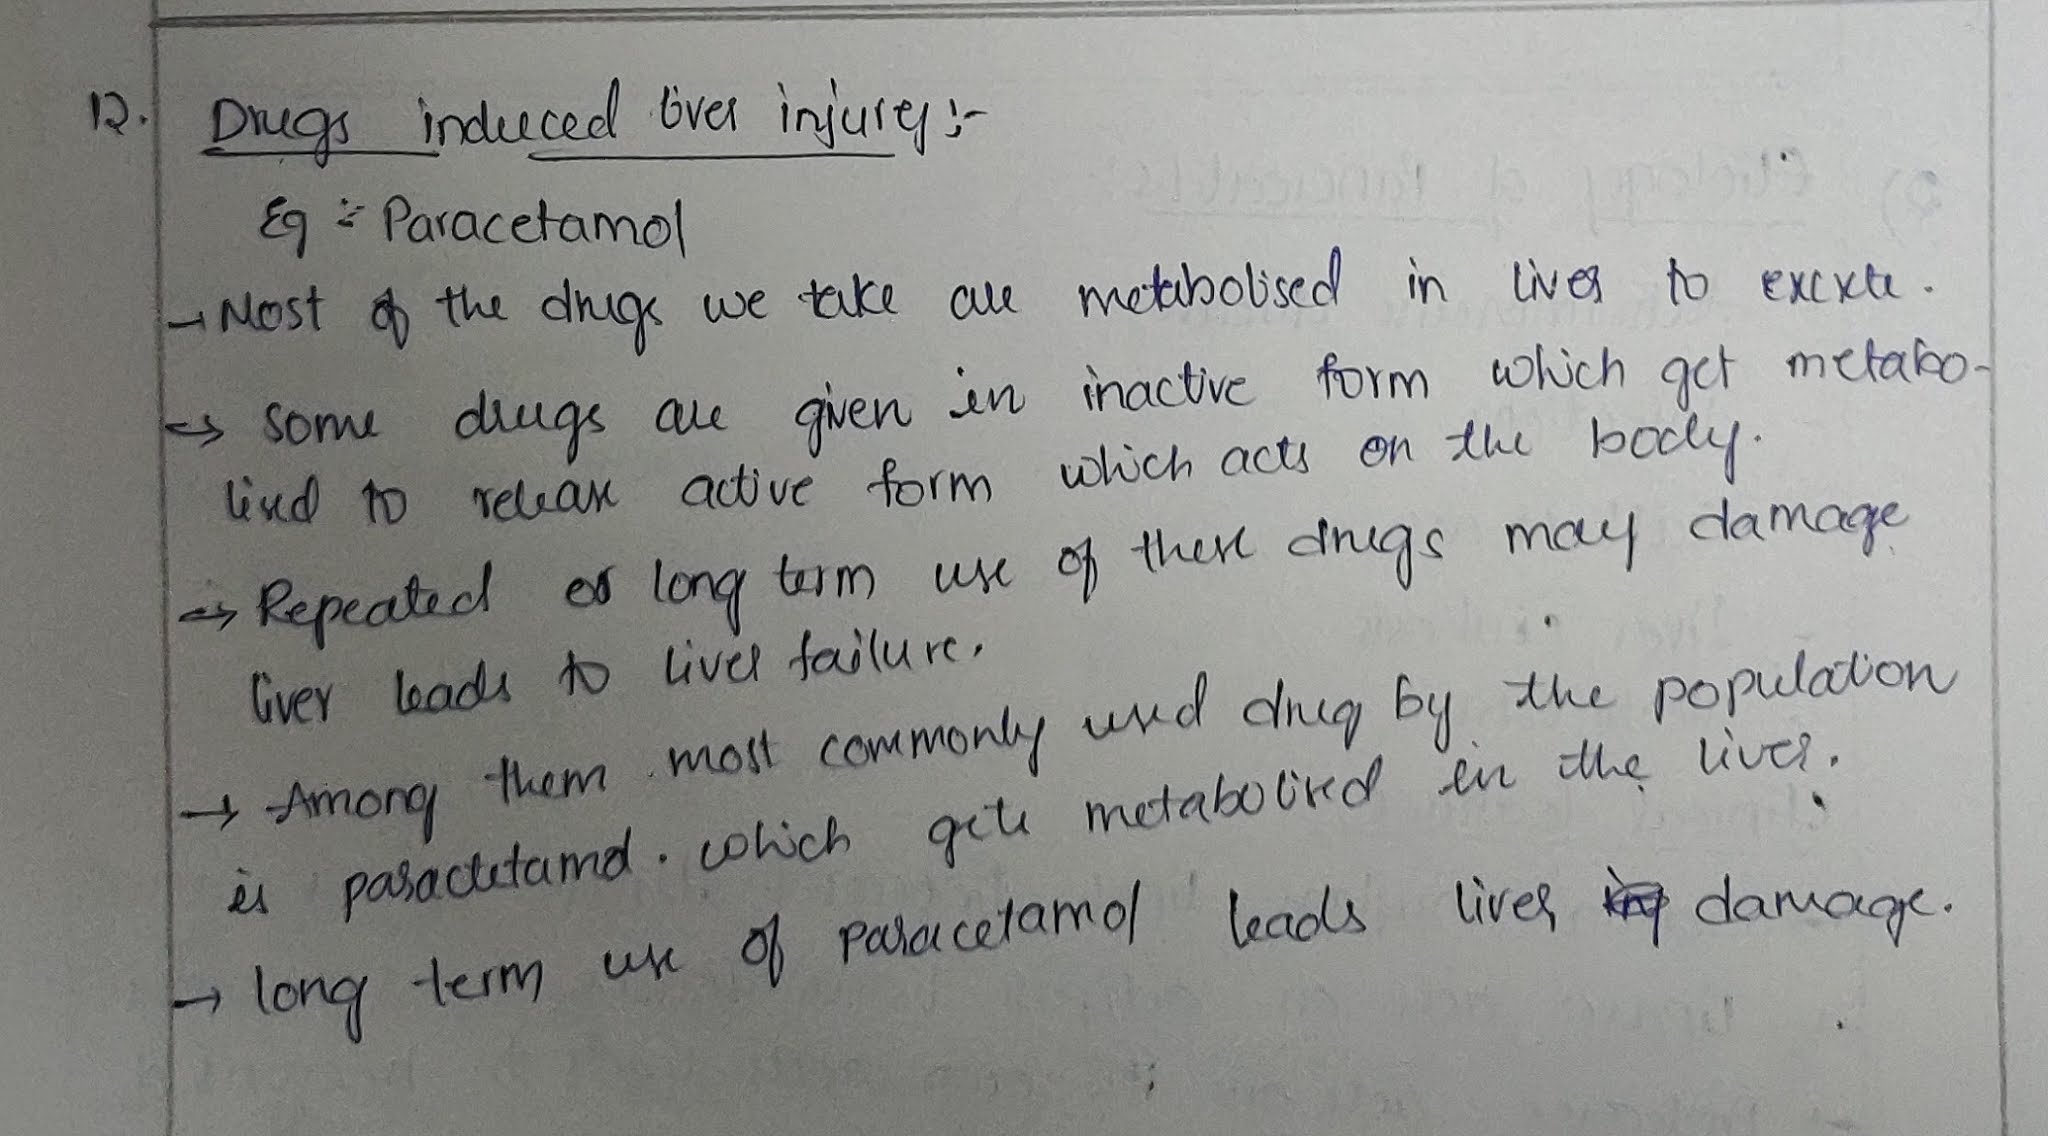 12. Drugs induced liver injury :-
Eg :- Paracetamol
→ Most of the drugs we take are metabolised in liver to excrete.
→ some drugs are given in inactive form which get metabo-
lised to release active form which acts on the body.
→ Repeated or long term use of these drugs may damage
liver leads to liver failure.
→ Among them most commonly used drug by the population
is paracetamol. which gets metabolised in the liver.
→ long term use of paracetamol leads liver damage.